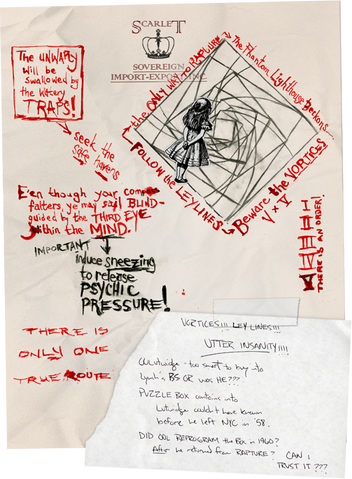 SCARLET
SOVEREIGN
IMPORT-EXPORT, INC.
The UNWARY
will be
swallowed by
the Watery
TRAPS!
seek the
safe havens
The ONLY WAY TO RAPTURE
The Phantom Lighthouse Beckons...
FOLLOW the LEYLINES
Beware the VORTICES
V x V
THERE IS AN ORDER!
E'en though your compass
falters, ye may sail BLIND-
guided by the THIRD EYE
within the MIND.
IMPORTANT
induce sneezing
to release
PSYCHIC
PRESSURE!
THERE IS
ONLY ONE
TRUE ROUTE
VORTICES!!! LEY-LINES!!!
UTTER INSANITY!!!!
Lutwidge - too smart to buy into
Lynch's BS OR was HE???
PUZZLE BOX contains info
Lutwidge couldn't have known
before he left NYC in '58.
DID REPROGRAM the Box in 1960?
After he returned from RAPTURE? CAN I
TRUST IT???